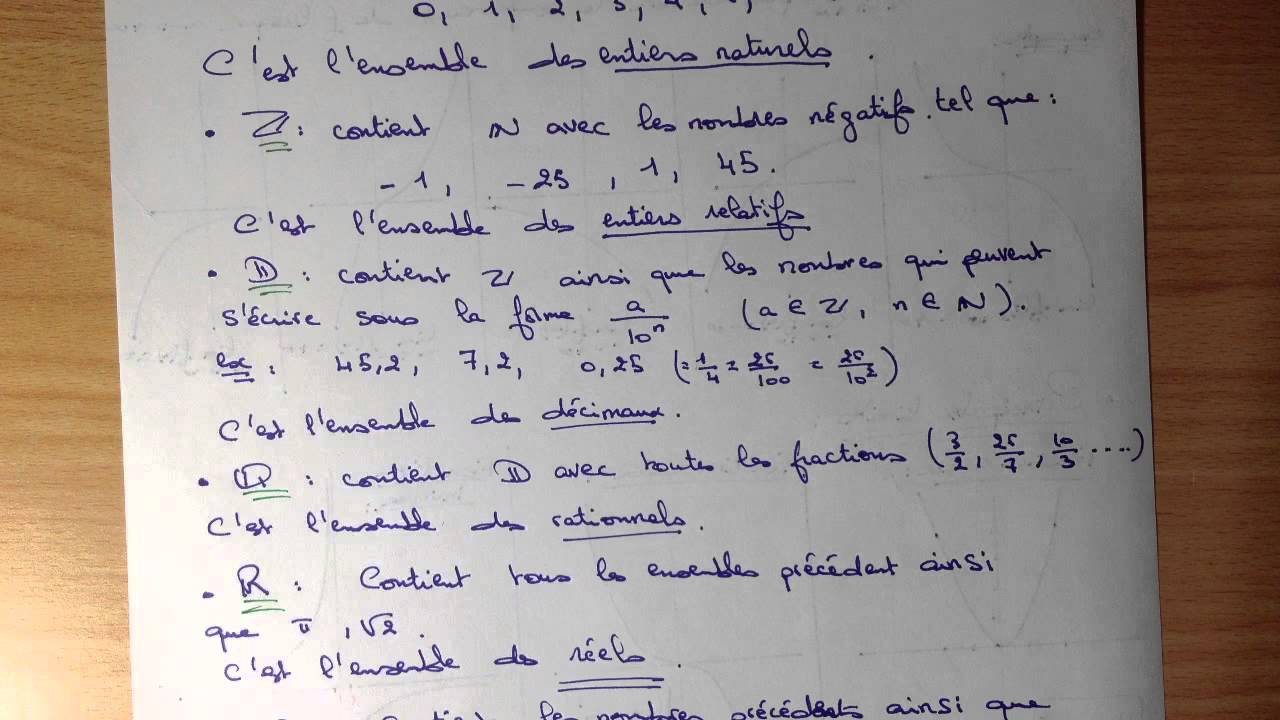 0, 1, 2, 3, 4,
C'est l'ensemble des entiers naturels.
• ℤ : contient ℕ avec les nombres négatifs. tel que :
-1, -25, 1, 45.
C'est l'ensemble des entiers relatifs
• 𝔻 : contient ℤ ainsi que les nombres qui peuvent
s'écrire sous la forme a/10ⁿ (a ∈ ℤ, n ∈ ℕ).
ex : 45,2, 7,2, 0,25 (= 1/4 = 25/100 = 25/10²)
C'est l'ensemble des décimaux.
• ℚ : contient 𝔻 avec toutes les fractions (3/2, 25/7, 10/3 ....)
C'est l'ensemble des rationnels.
• ℝ : Contient tous les ensembles précédent ainsi
que π, √2.
C'est l'ensemble des réels.
les nombres précédents ainsi que